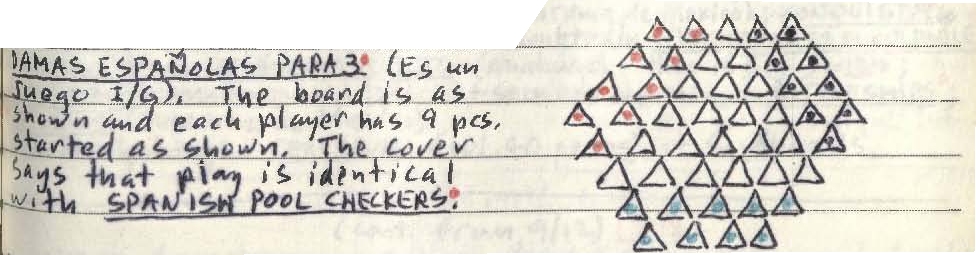 DAMAS ESPAÑOLAS PARA 3• (Es un
Juego I/G). The board is as
shown and each player has 9 pcs,
started as shown. The cover
says that play is identical
with SPANISH POOL CHECKERS•